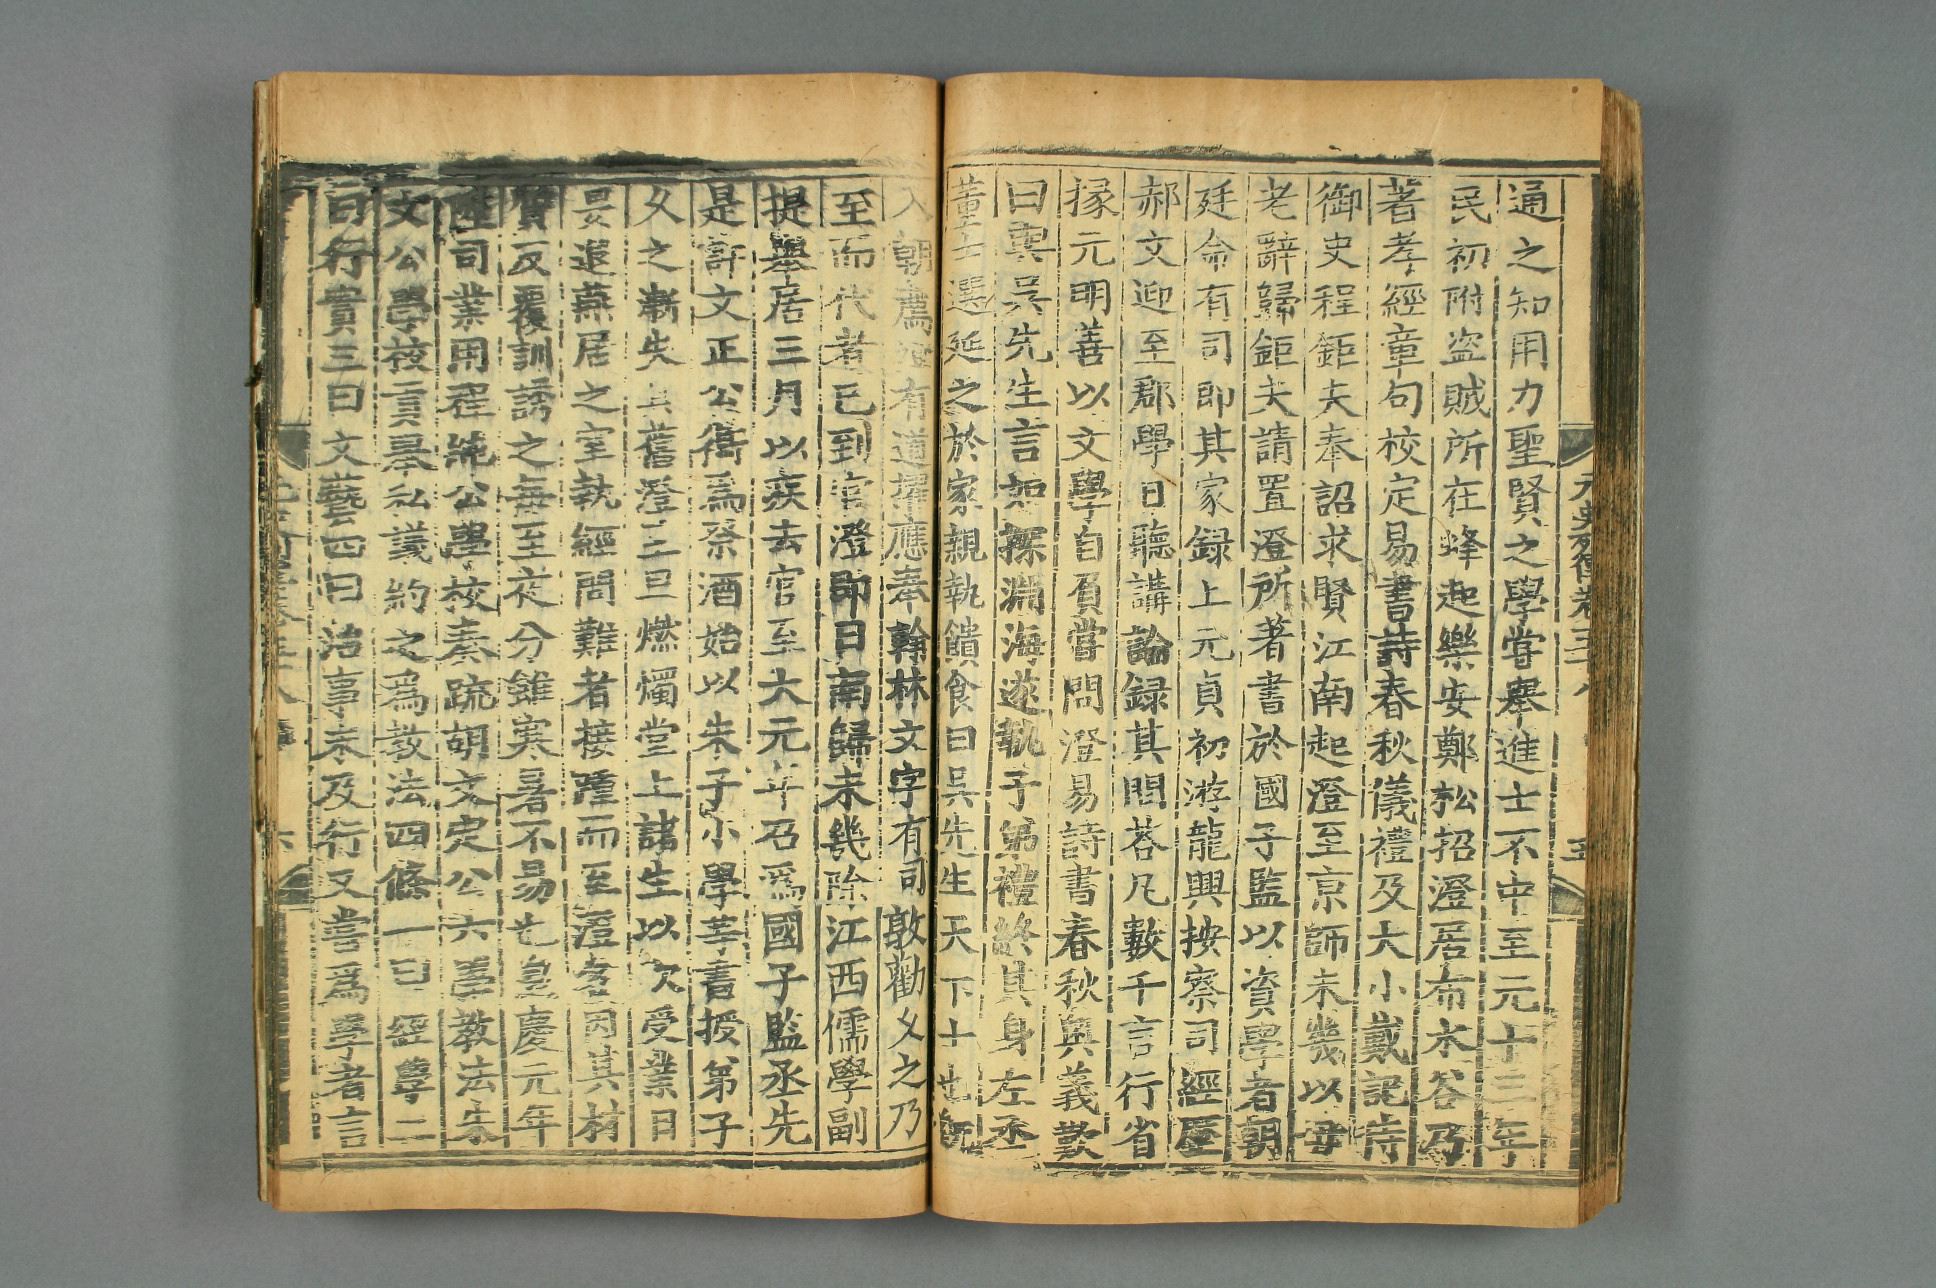 通之知用力聖賢之學甞舉進士不中至元十三年
民初附盗賊所在蜂起樂安鄭松招澄居布水谷乃
著孝經章句校定易書詩春秋儀禮及大小戴記侍
御史程鉅夫奉詔求賢江南起澄至京師未幾以母
老辭歸鉅夫請置澄所著書於國子監以資學者朝
廷命有司即其家録上元貞初游龍興按察司經歷
郝文迎至郡學日聽講論録其問荅凡數千言行省
掾元明善以文學自負嘗問澄易詩書春秋奥義歎
曰與吳先生言如探淵海遂執子弟禮終其身左丞
董士選延之於家親執饋食曰吳先生天下士也既
入朝薦澄有道擢應奉翰林文字有司敦勸久之乃
至而代者已到官澄即日南歸未幾除江西儒學副
提舉居三月以疾去官至大元年召爲國子監丞先
是許文正公衡爲祭酒始以朱子小學等書授弟子
久之漸失其舊澄至旦燃燭堂上諸生以次受業日
昃退燕居之室執經問難者接踵而至澄各因其材
質反覆訓誘之每至夜分雖寒暑不易也皇慶元年
陞司業用程純公學校奏疏胡文定公六學教法朱
文公學校貢舉私議約之爲教法四條一曰經學二
曰行實三曰文藝四曰治事未及行又嘗爲學者言